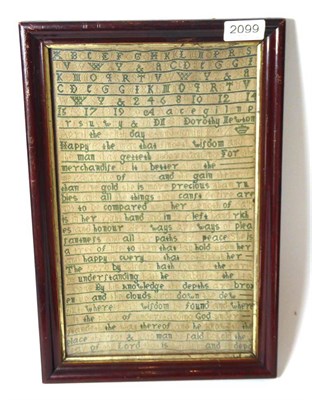 2099
A B C E F G H K L N P R S
V W Y & A C D E G G I
K M O P R T V W Y & A
C D E G G I K M O P R T V
W Y & 2 4 6 8 10 12 14
15 17 19 04 a c e g i l n p
r s u w y & DN Dorothy Newton
the day
Happy the that wisdom
man getteth For
merchandise is better the
of and gain
than gold is precious ru
bies all things canst are
to compared her of
is her hand in left rich
es honour ways ways plea
santness all paths peace
a of to that hold her
happy every that her
The by hath the
understanding he the
By knowledge depths brok
en and clouds down dew
where wisdom found where
the of God
the thereof he the
place & man said the
of Lord is and